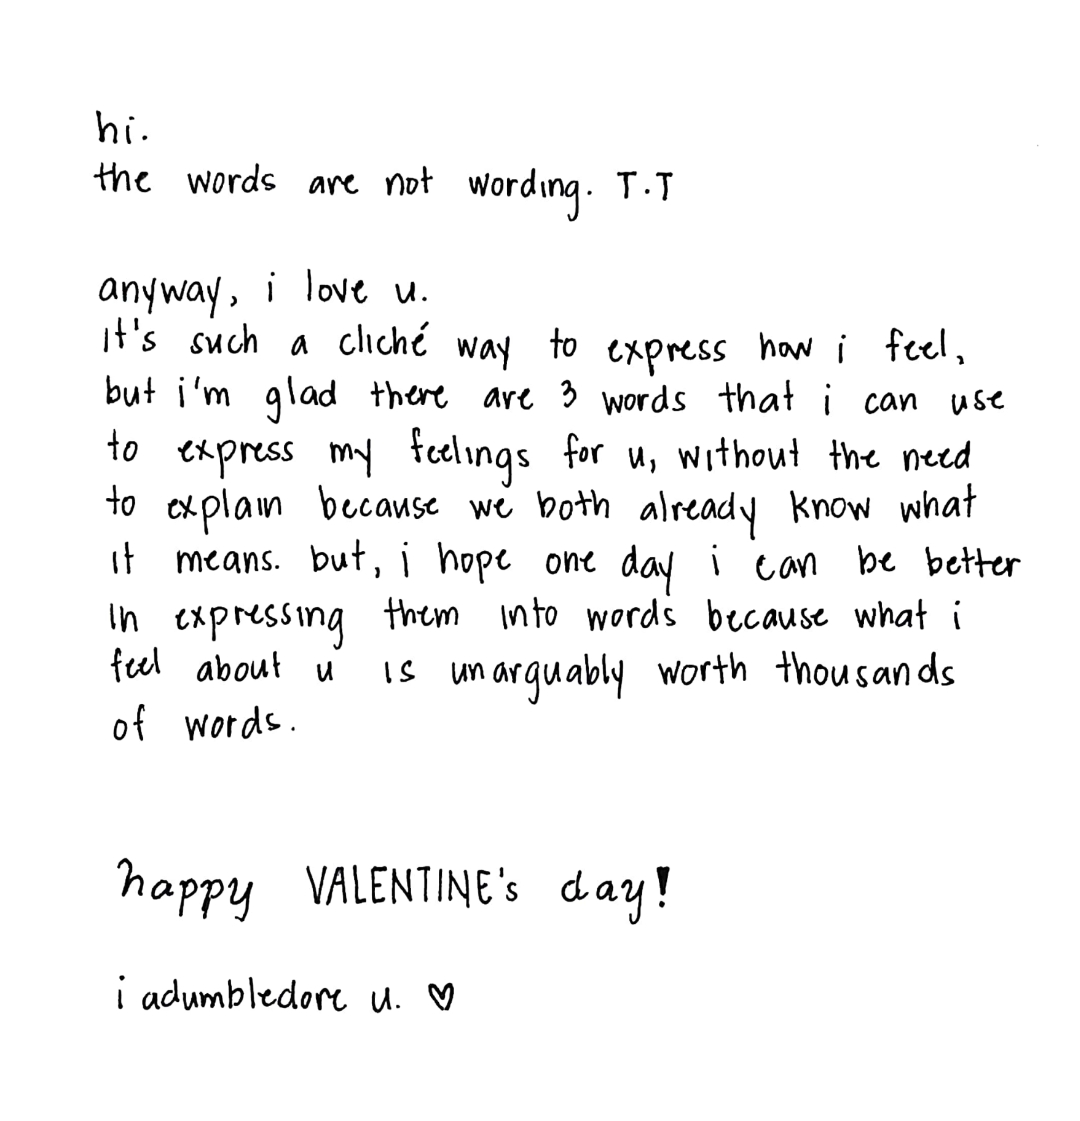 hi.
the words are not wording. T.T
anyway, i love u.
it's such a cliché way to express how i feel,
but i'm glad there are 3 words that i can use
to express my feelings for u, without the need
to explain because we both already know what
it means. but, i hope one day i can be better
in expressing them into words because what i
feel about u is unarguably worth thousands
of words.
happy VALENTINE's day!
i adumbledore u. ♡